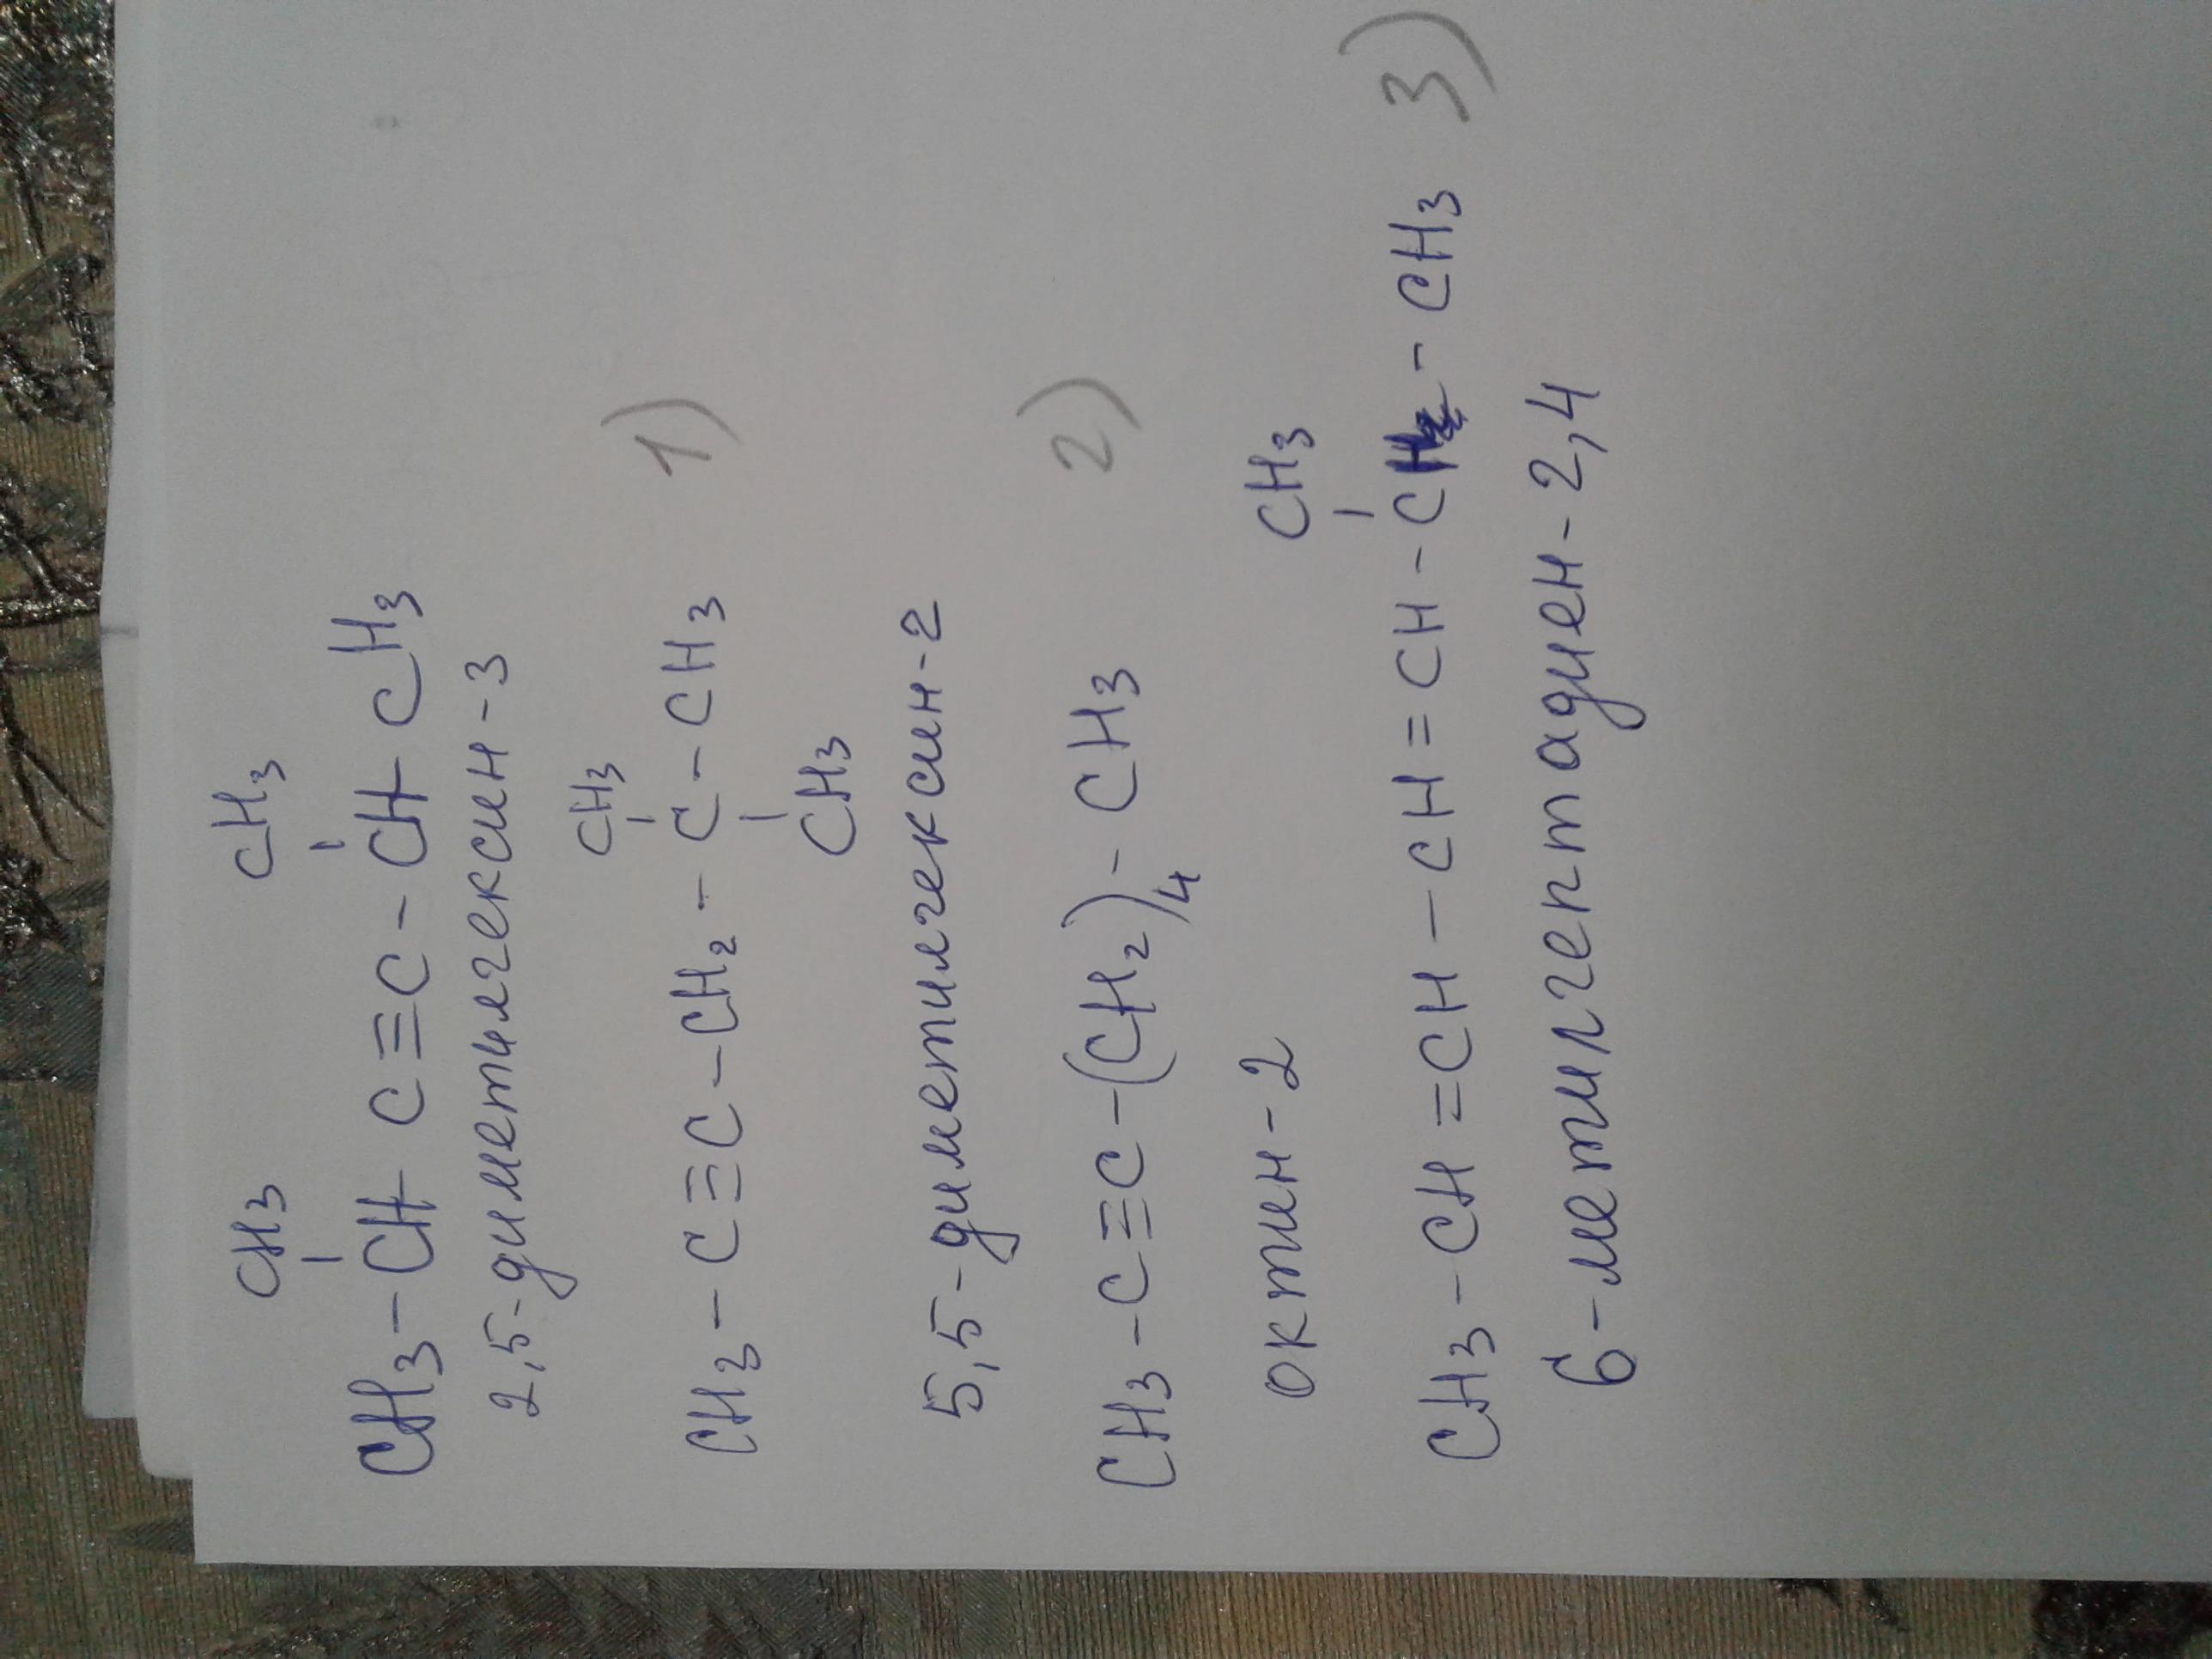 CH3 CH3
CH3-CH C≡C-CH-CH3
2,5-диметилгексин-3
CH3
CH3-C≡C-CH2-C-CH3 1)
CH3
5,5-диметилгексин-2
CH3-C≡C-(CH2)4-CH3 2)
октин-2
CH3
CH3-CH=CH-CH=CH-CH-CH3 3)
6-метилгептадиен-2,4